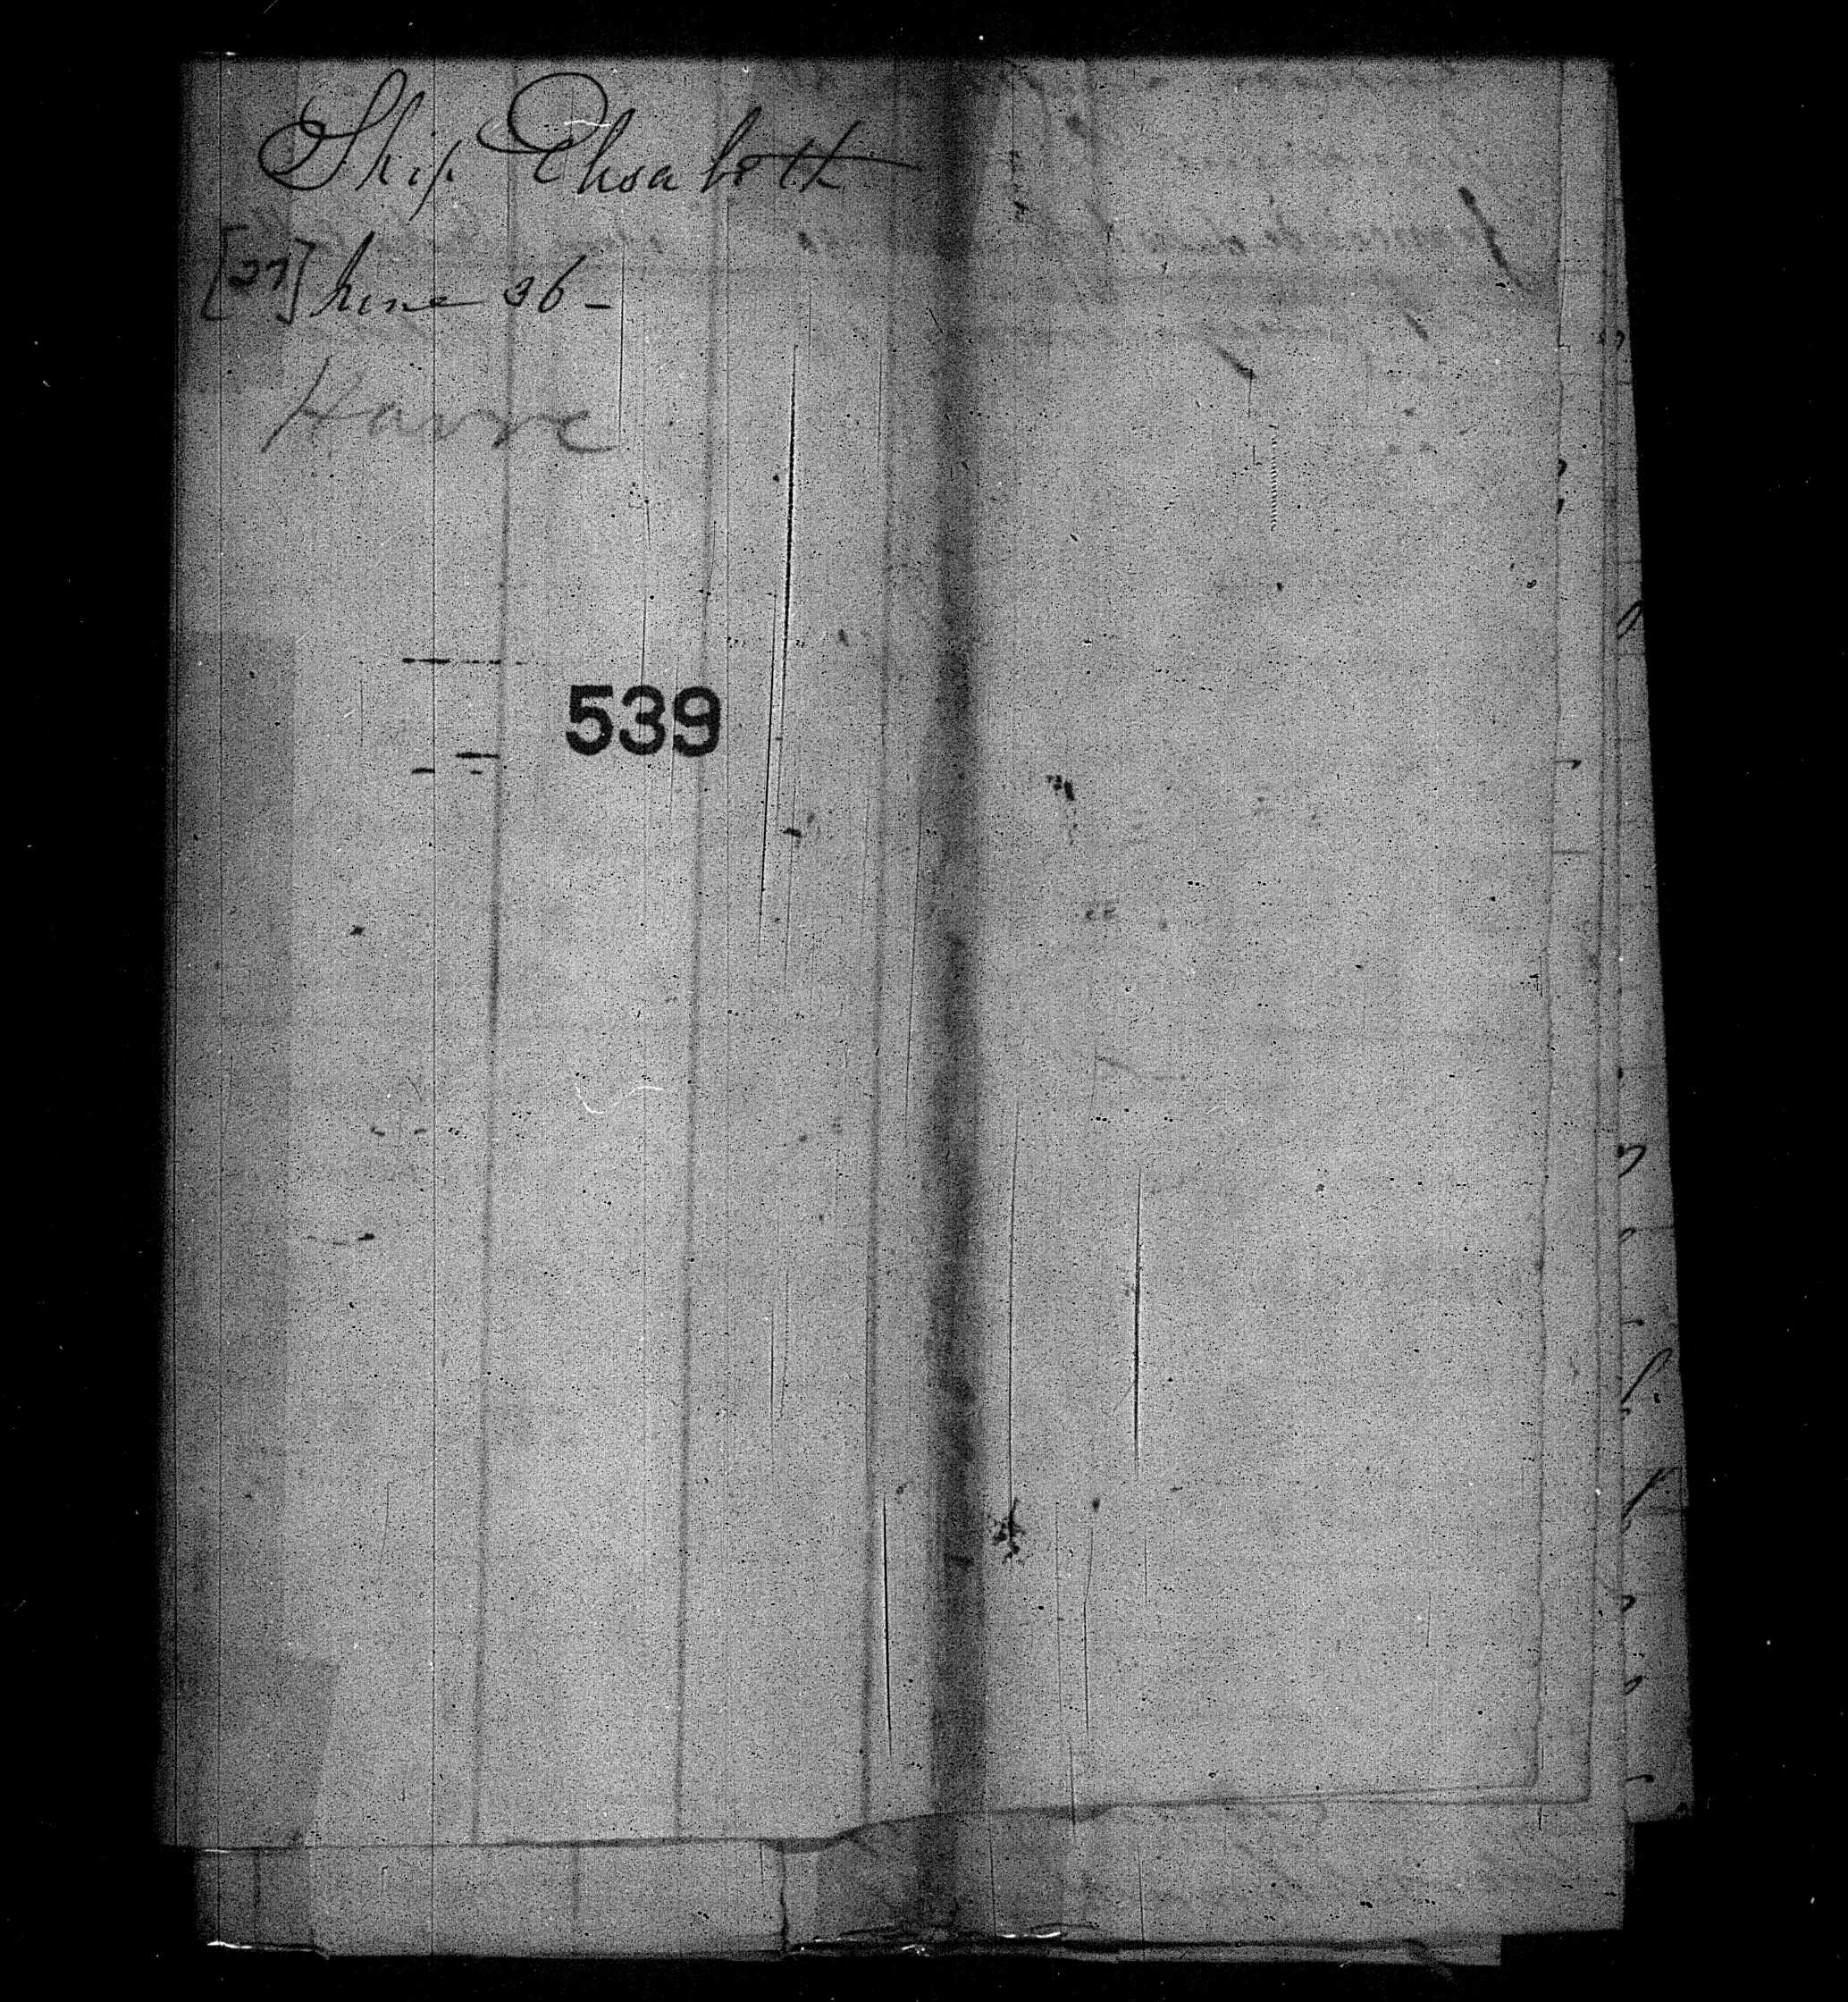 Ship Elisabeth
[27] June 26 -
Havre
539